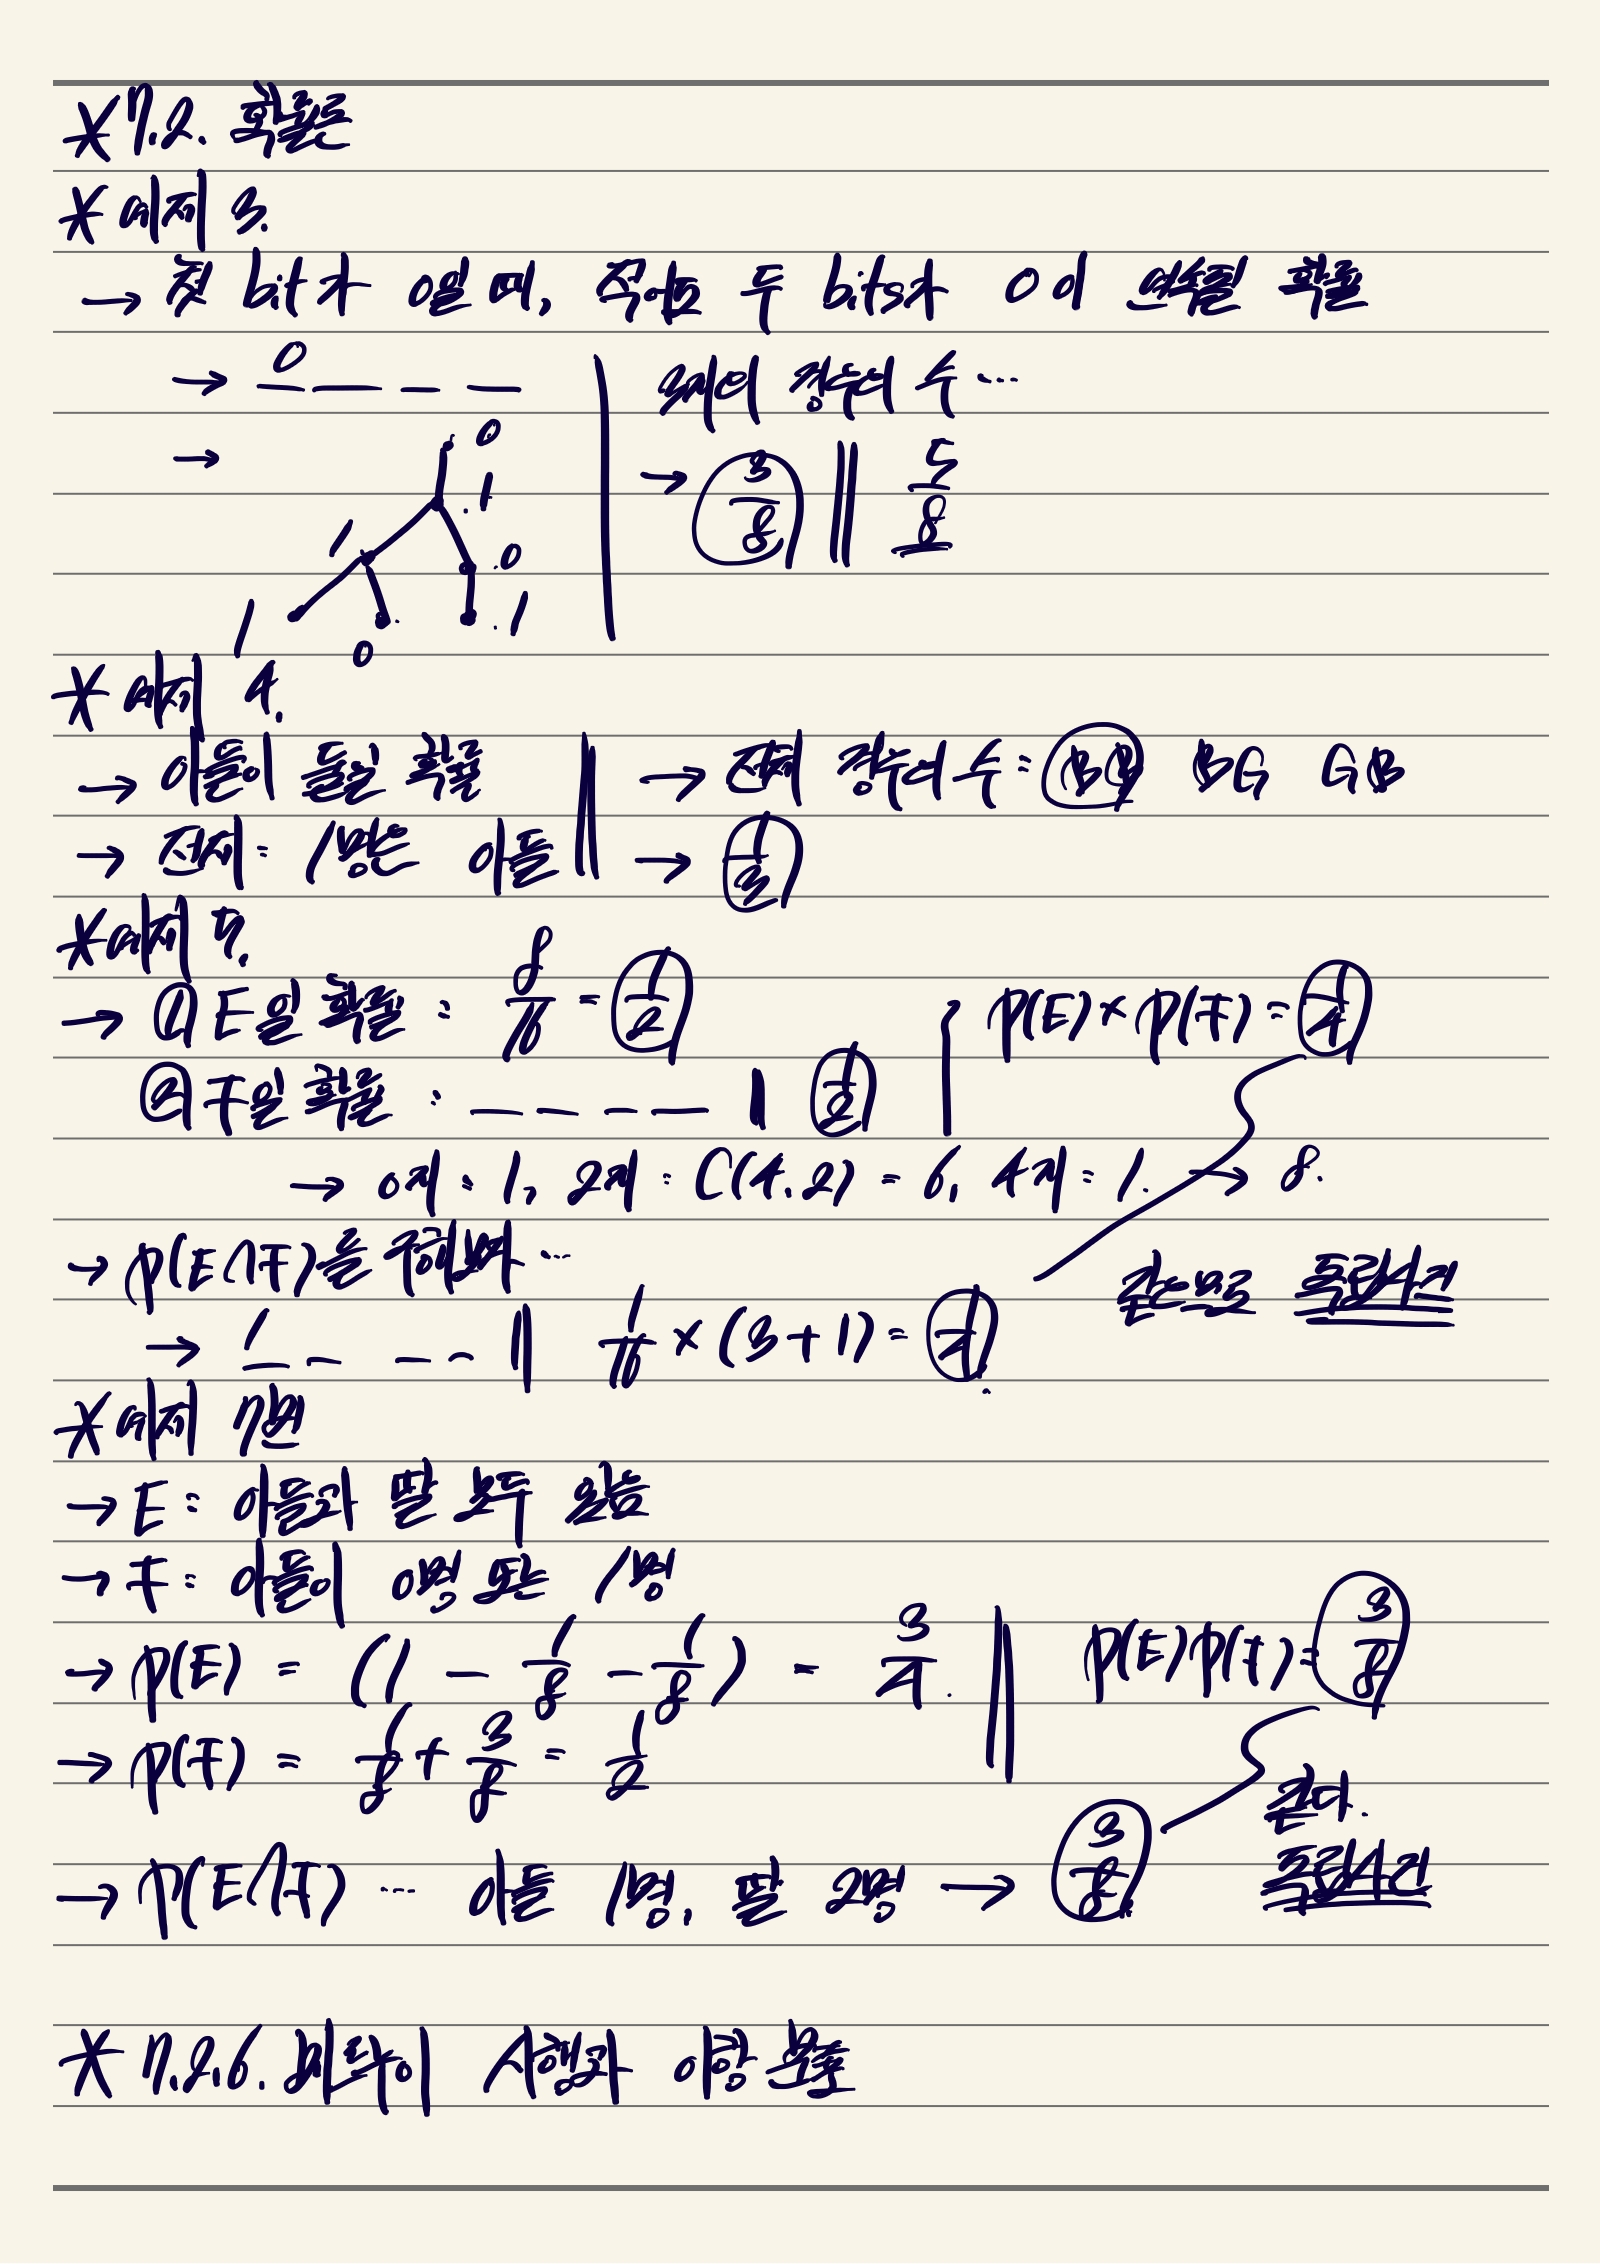 * 7.2. 확률론
* 예제 3.
→ 첫 bit가 0일 때, 적어도 두 bits가 0이 연속될 확률
→ 0 _ _ _ 3개의 경우의 수 ...
→ 0 1 1 0 1 0 1 → 3/8 || 5/8
* 예제 4.
→ 아들이 둘일 확률 || → 전체 경우의 수 = BB BG GB
→ 전제 = 1명은 아들 || → 1/3
* 예제 5.
→ ① E일 확률 : 8/16 = 1/2 p(E) × p(F) = 1/4
② F일 확률 : _ _ _ _ || 1/2
→ 0개 : 1, 2개 : C(4,2) = 6, 4개 = 1. → 8.
→ p(E∩F)를 구해보면 ...
같으므로 독립사건
→ 1 _ _ _ || 1/16 × (3+1) = 1/4
* 예제 7번
→ E : 아들과 딸 모두 있음
→ F : 아들이 0명 또는 1명
→ p(E) = (1 - 1/8 - 1/8) = 3/4. || p(E)p(F) = 3/8
→ p(F) = 1/8 + 3/8 = 1/2
같다.
→ p(E∩F) ... 아들 1명, 딸 2명 → 3/8 독립사건
* 7.2.6. 베르누이 시행과 이항 분포